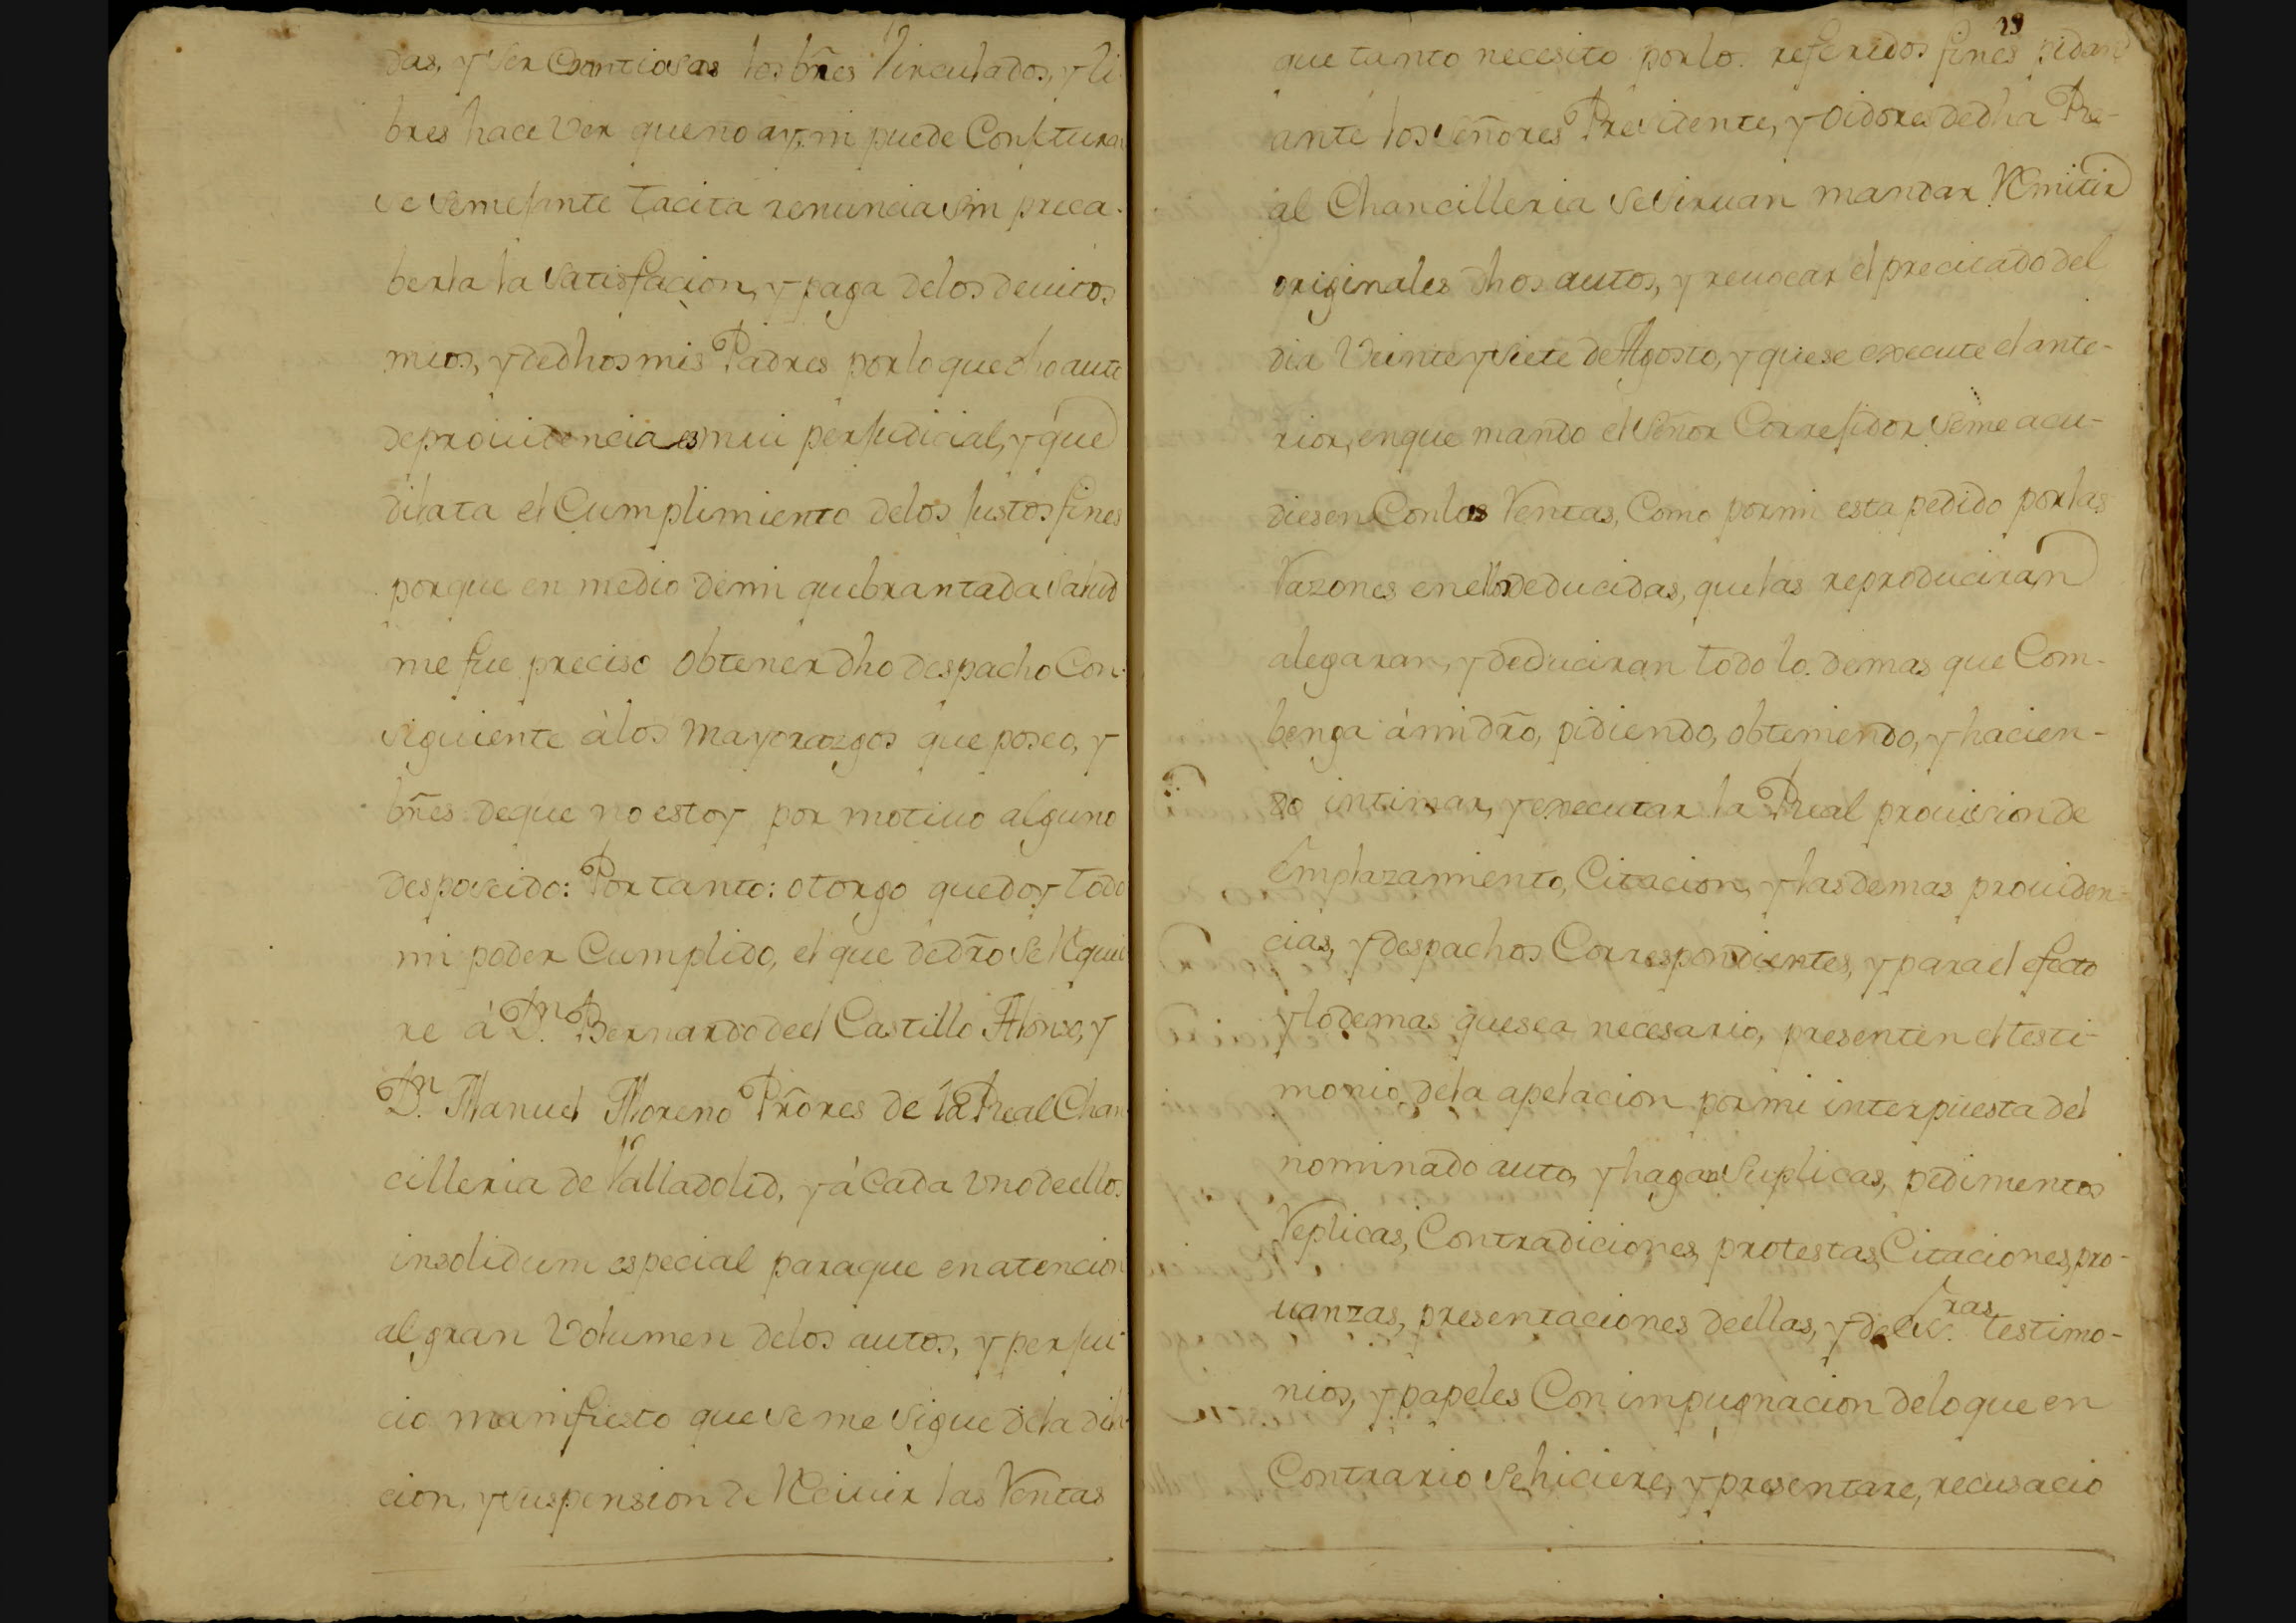 das, y ser Quantiosas los bñes Vinculados, y li-
bres hace Ver que no ay, ni puede Conjtura
se semejante tacita renuncia sin preca-
berla la satisfacion, y paga delos devitos
mios, y de dhos mis Padres por lo que dho auto
de providencia es mui perjudicial, y que
dilata el Cumplimiento delos justos fines
porque en medio demi quebrantada salud
me fue preciso obtener dho despacho Con-
siguiente à los mayorazgos que poseo, y
bñes deque no estoy por motivo alguno
desposeido: Por tanto: otorgo que doy todo
mi poder Cumplido, el que de dr̃o se Requie
re á Dn. Bernardo de el Castillo Alonso, y
Dn. Manuel Moreno Prõres de la Real Chan
cilleria de Valladolid, y à Cada Uno de ellos
insolidum especial para que en atencion
al gran Volumen delos autos, y perjui
cio manifiesto que se me sigue dela dila
cion, y suspension de Recivir las Rentas
29
que tanto necesito por lo. referidos fines pidan
ante los señores Presidente, y Oidores de dha Re-
al Chancilleria se sirvan mandar Remitir
originales dhos autos, y revocar el precitado del
dia Veinte y siete de Agosto, y que se execute el ante-
rior, en que mando el señor Corregidor se me acu-
diesen Con las Rentas, Como por mi esta pedido por las
Razones en ello deducidas, que las reproduciran
alegaran, y deduciran todo lo demas que Com-
benga á mi dr̃o, pidiendo, obteniendo, y hacien-
do intimar, y executar la Real provision de
Emplazamiento, Citacion, y las demas providen-
cias, y despachos Correspondientes, y para el efecto
y lo demas que sea necesario, presenten el testi-
monio dela apelacion por mi interpuesta del
nominado auto, y hagan suplicas, pedimentos
Replicas, Contradiciones, protestas, Citaciones, pro-
vanzas, presentaciones de ellas, y de escras testimo-
nios, y papeles Con impugnacion delo que en
Contrario se hiciere, y presentare, recusacio